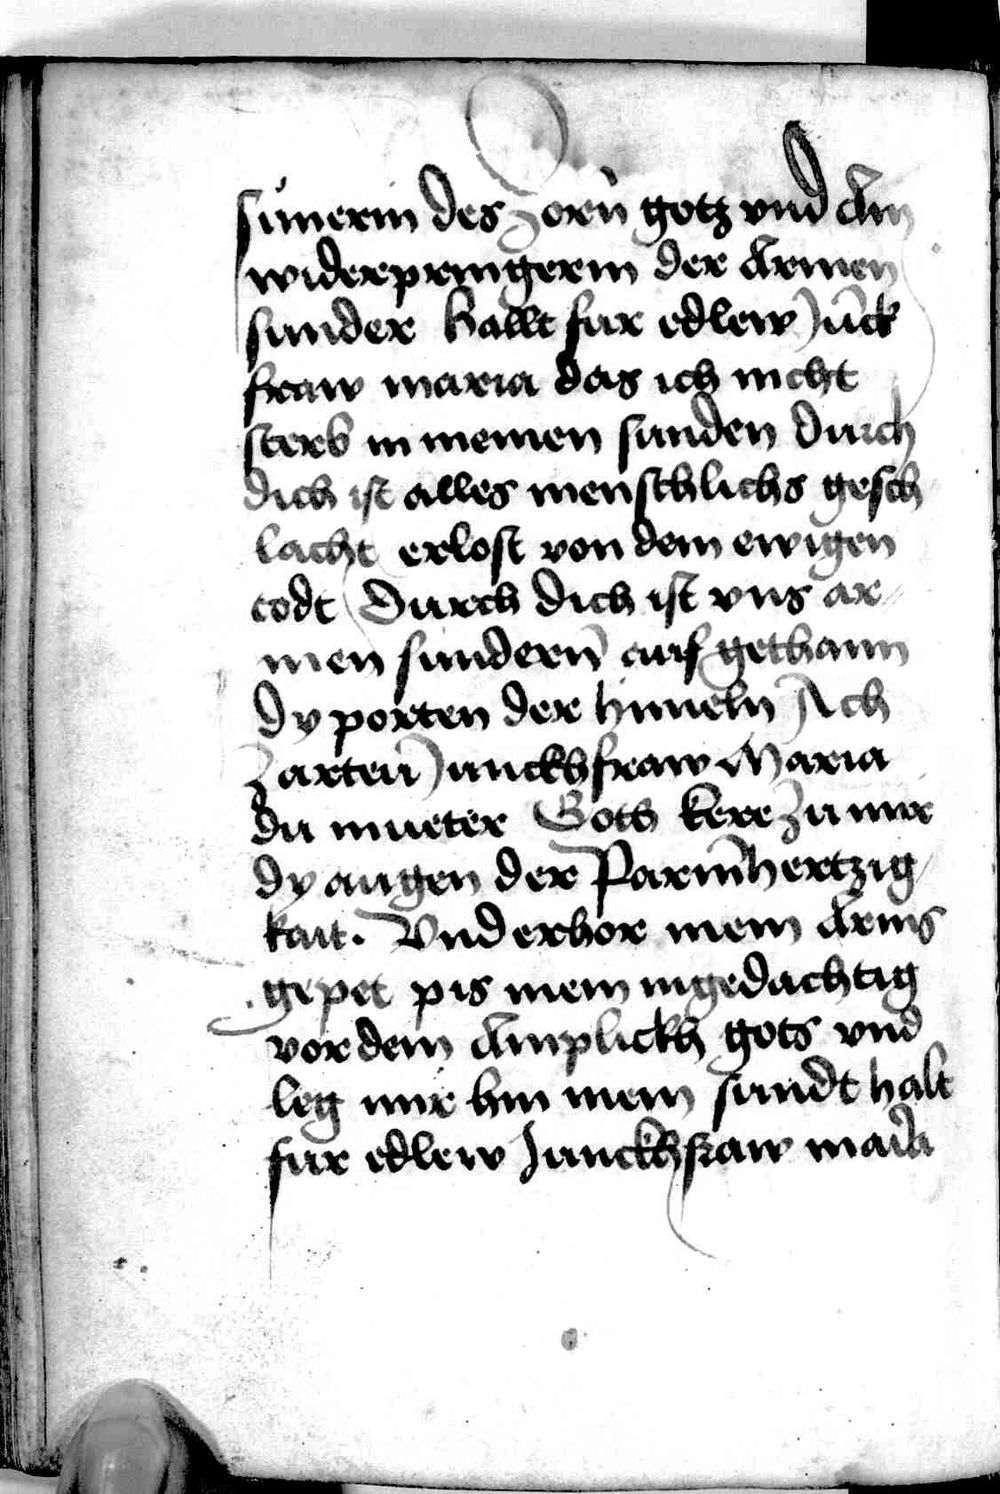 sünerin des zorn̄ gotz vnd Ain
widerpringerin der Armen
sunder Hallt fur edlew Jūck
fraw maria das ich nicht
sterb in meinen sunden durch
dich ist alles menschlichs gesch
lacht erlost von dem ewigen
todt Durch dich ist vns ar
men sundern̄ auf gethann
dy porten der himeln Ach
Zarten̄ Junckhfraw Maria
du mueter Gots kere zu mir
dy augen der Parm̄hertzig
kait. Vnd erhor mein Arms
gepet pis mein ingedachtig
vor dem Amplickh gots vnd
leg mir hin mein sundt halt
fur edlew Junckhfraw maria